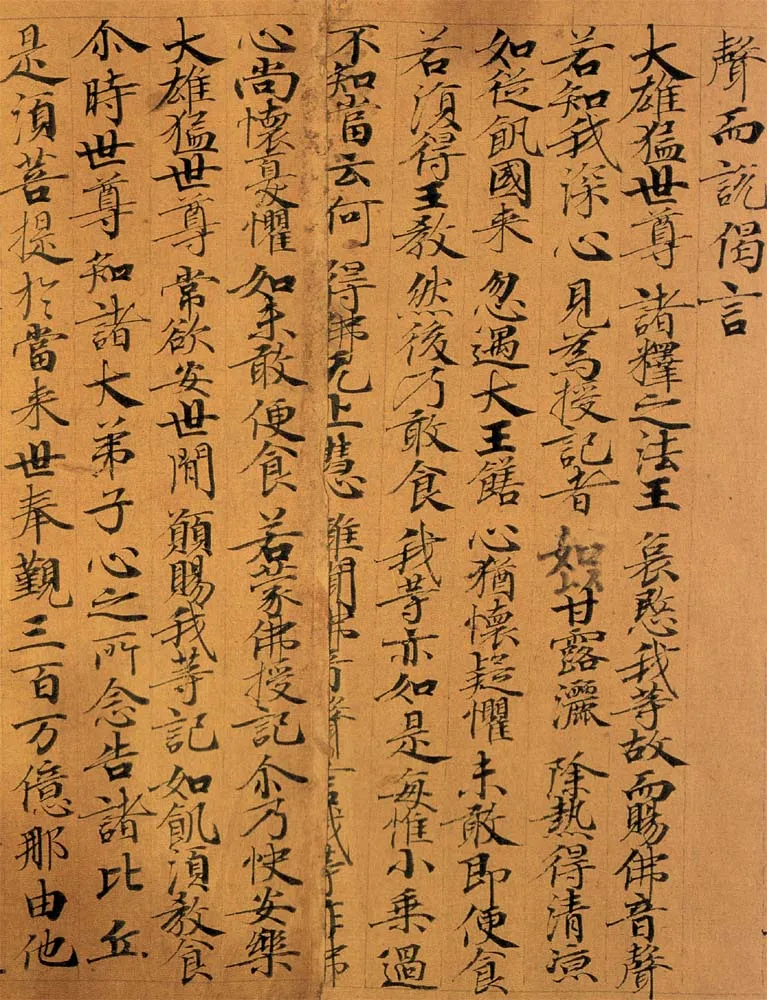 聲而說偈言
大雄猛世尊 諸釋之法王 哀愍我等故 而賜佛音聲
若知我深心 見為授記者 如以甘露灑 除熱得清凉
如從飢國来 忽遇大王饍 心猶懷疑懼 未敢即便食
若須得王教 然後乃敢食 我等亦如是 每惟小乘過
不知當云何 得佛无上慧 雖聞佛音聲 言我等作佛
心尚懷憂懼 如未敢便食 若蒙佛授記 尒乃快安樂
大雄猛世尊 常欲安世間 願賜我等記 如飢須教食
尒時世尊知諸大弟子心之所念告諸比丘
是須菩提於當来世奉覲三百万億那由他